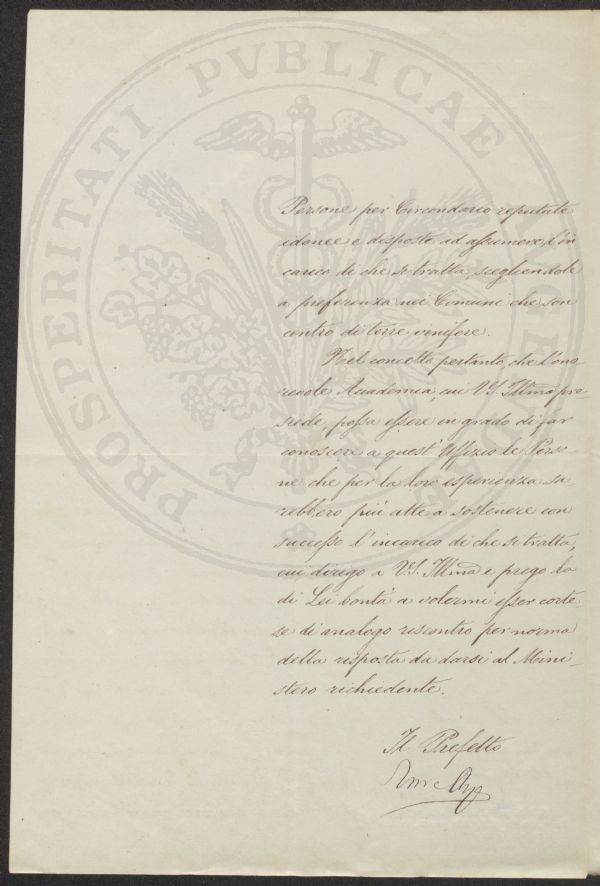 PROSPERITATI PVBLICAE AVGENDAE
Persone per Circondario reputate
idonee e disposte ad assumere l'in
carico di che si tratta, scegliendole
a preferenza nei Comuni che son
centro di terre vinifere.
Nel concetto pertanto, che l'ono
revole Accademia, cui V.S. Illma pre
siede, possa essere in grado di far
conoscere a quest' Uffizio le Perso
ne che per la loro esperienza sa
rebbero più atte a sostenere con
successo l'incarico di che si tratta,
mi dirigo a V.S. Illma e prego la
di Lei bontà a volermi esser corte
se di analogo riscontro per norma
della risposta da darsi al Mini
stero richiedente.
Il Prefetto